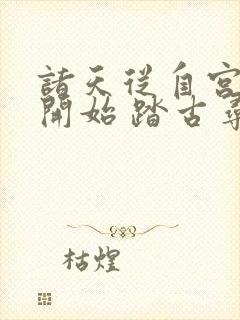 諸天從自宮
開始踏古尋
枯煌